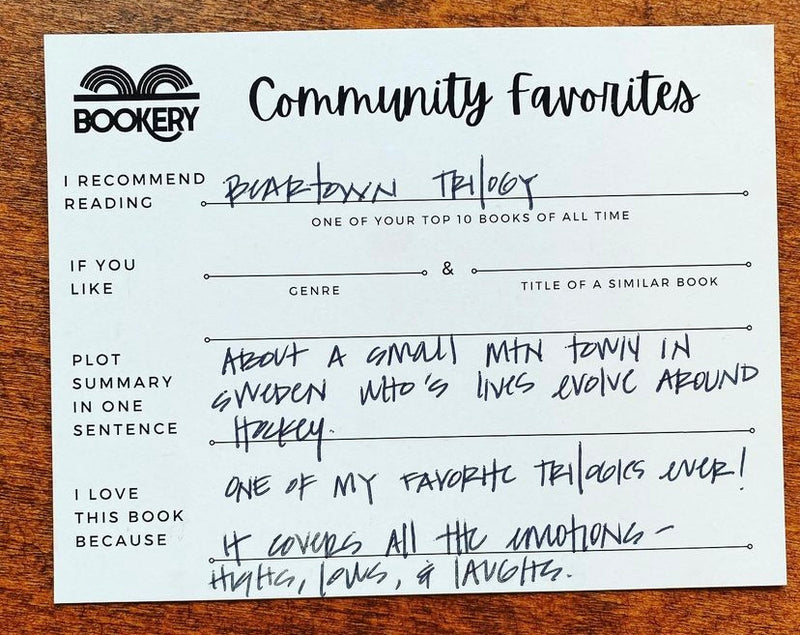 BOOKERY
Community Favorites
I RECOMMEND READING
BEARTOWN TRILOGY
ONE OF YOUR TOP 10 BOOKS OF ALL TIME
IF YOU LIKE
&
GENRE
TITLE OF A SIMILAR BOOK
PLOT SUMMARY IN ONE SENTENCE
ABOUT A SMALL MTN TOWN IN
SWEDEN WHO'S LIVES EVOLVE AROUND
HOCKEY.
I LOVE THIS BOOK BECAUSE
ONE OF MY FAVORITE TRILOGIES EVER!
IT COVERS ALL THE EMOTIONS -
HIGHS, LOWS, & LAUGHS.